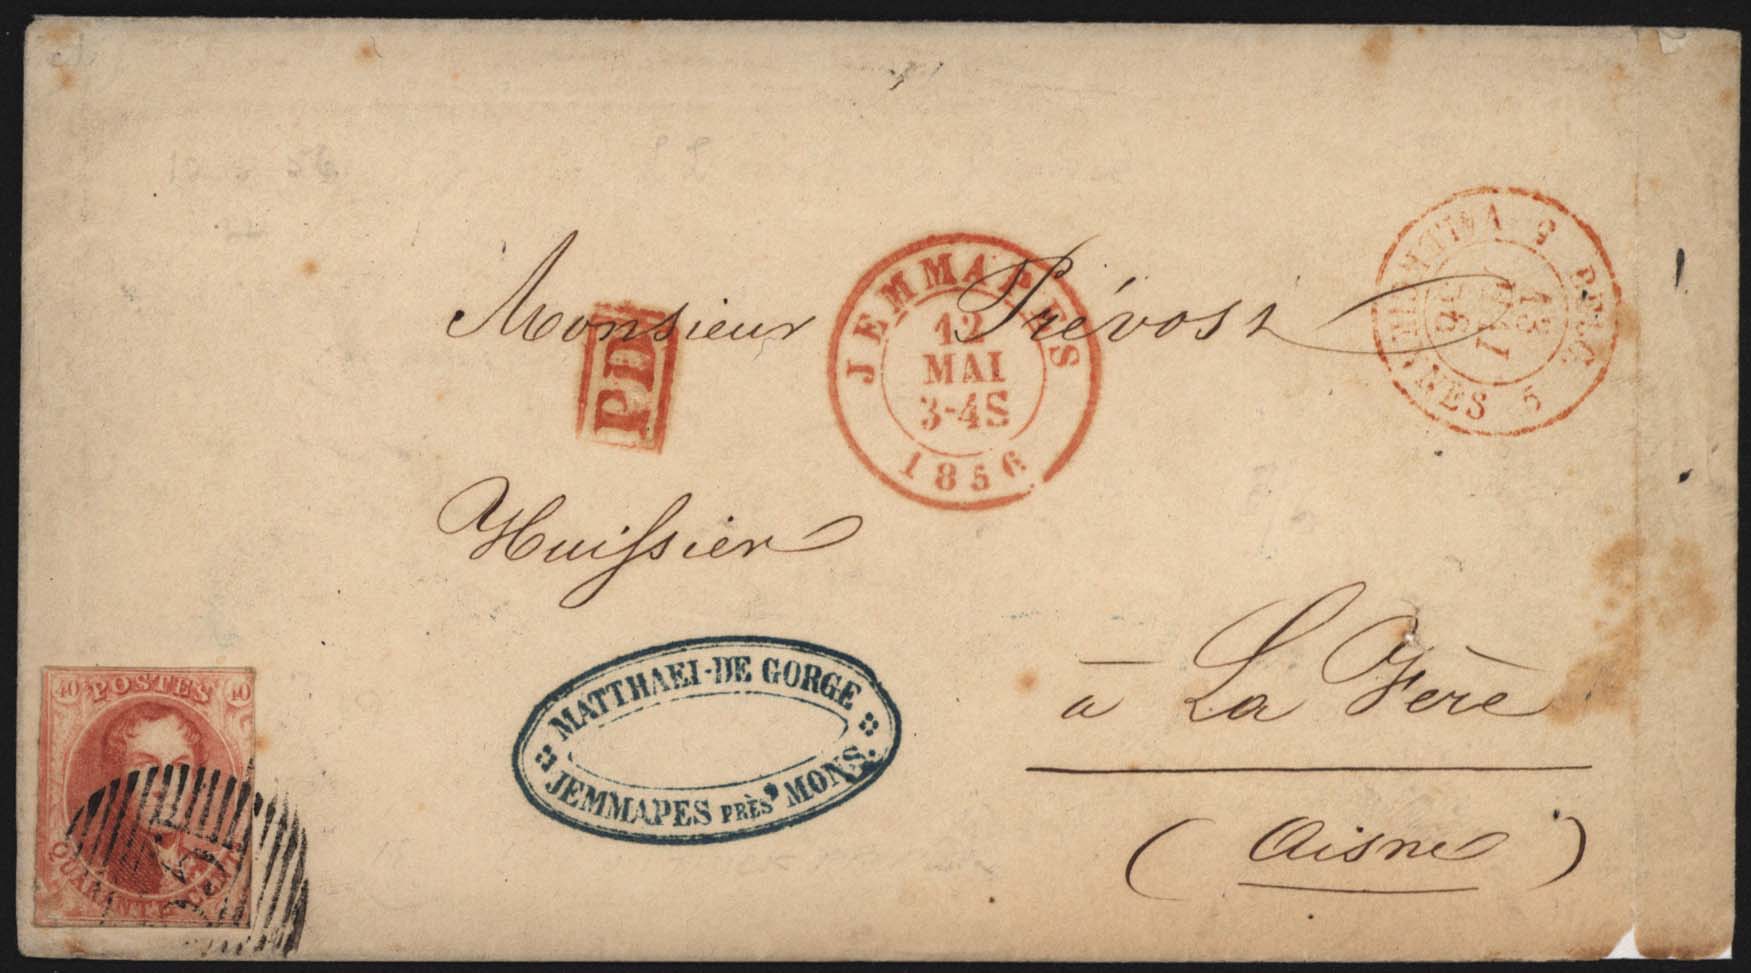 Monsieur Prévost
Huissier
à La Fère
(Aisne)
PD
JEMMAPES
12
MAI
3-4S
1856
BELG. 5 VALENTIN
13
MAI
56
NES 5
MATTHAEI-DE GORGE
JEMMAPES PRÈS MONS.
40 POSTES 40
QUARANTE CENT